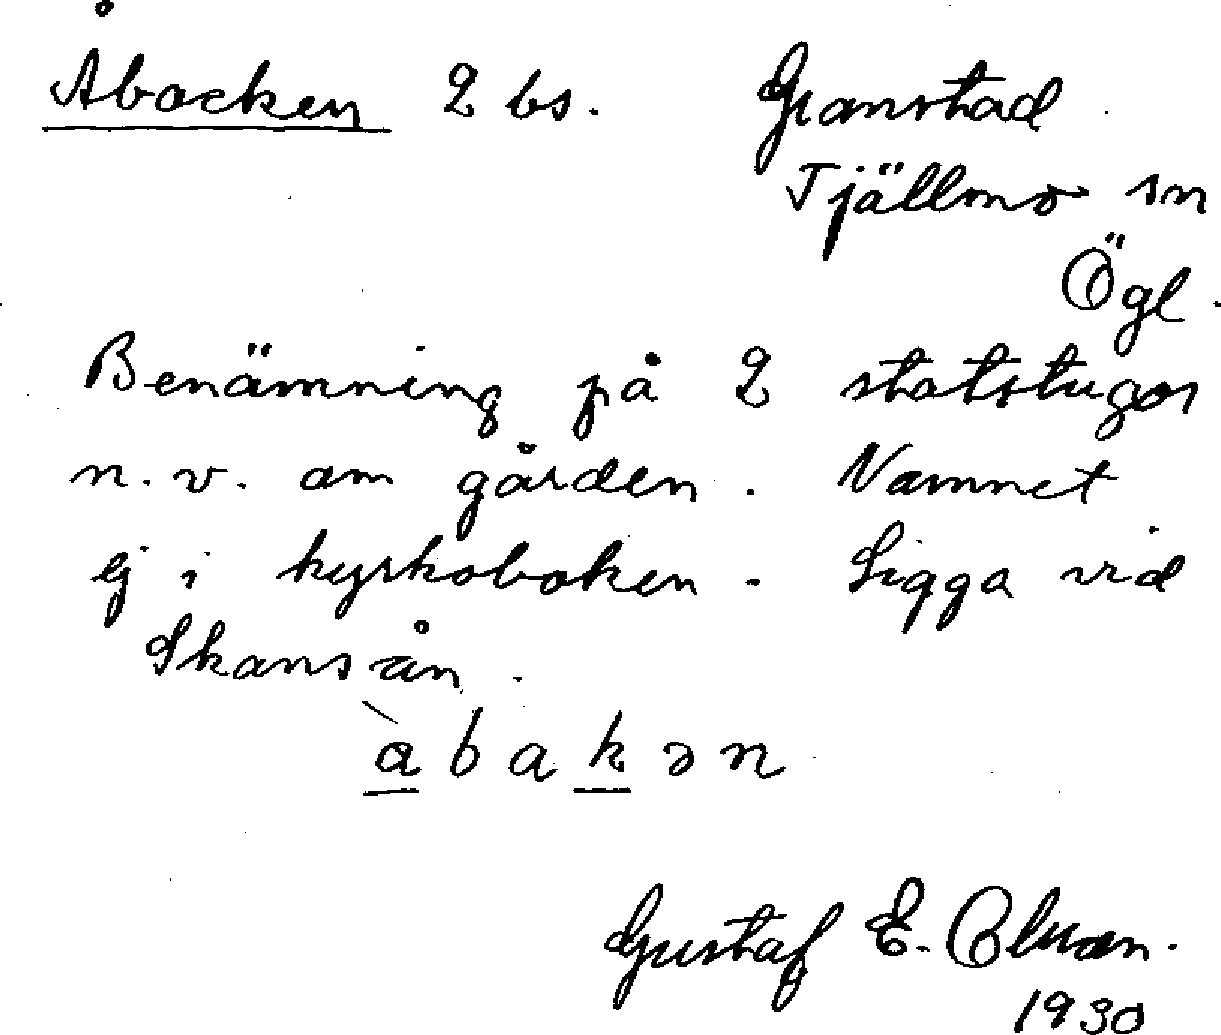 Åbacken 2 bs. Granstad
Tjällmo sn
Ögl.
Benämning på 2 statstugor
n.v. om gården. Namnet
ej i kyrkoboken. Ligga vid
Skansån.
àbakən
Gustaf E.
1930